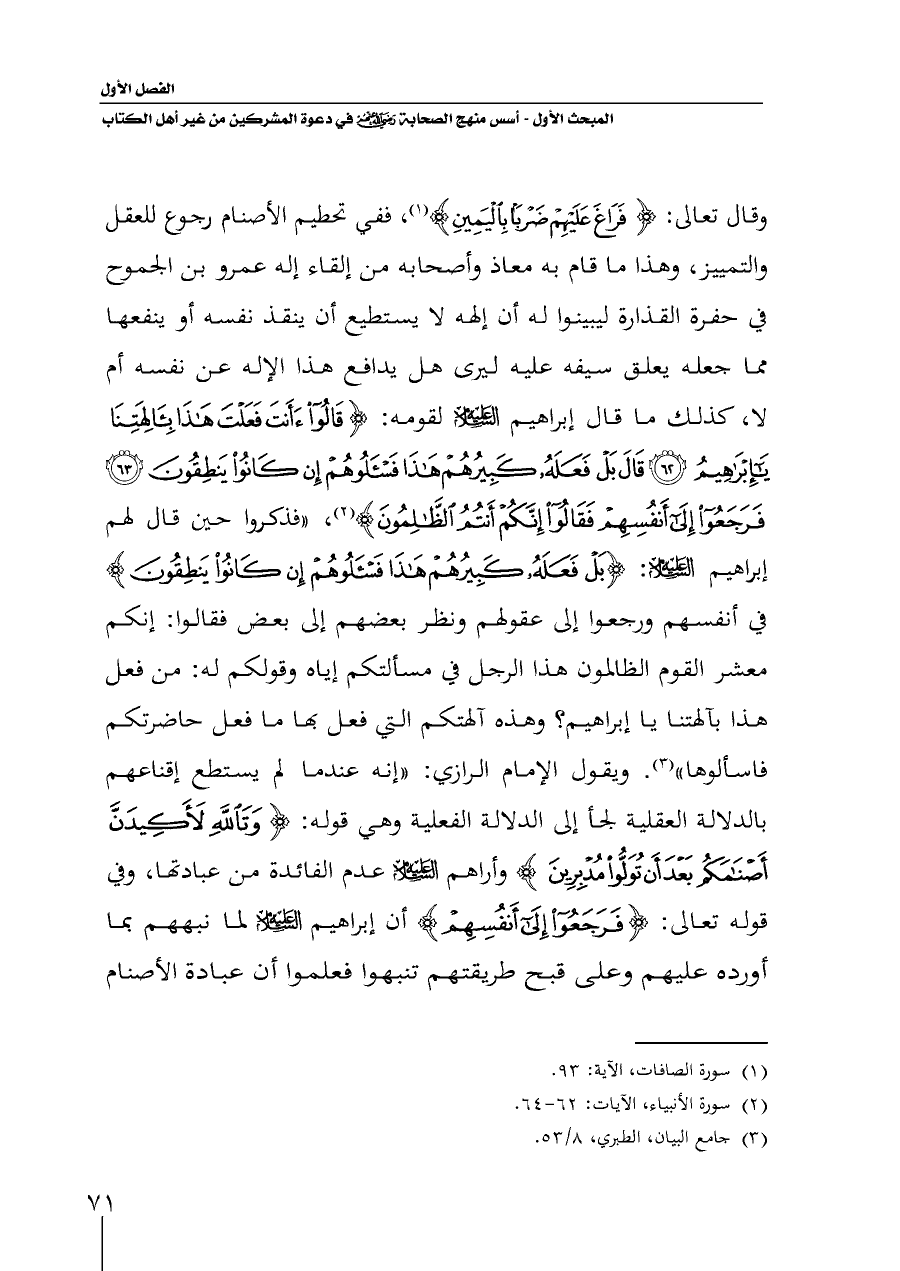 الفصل الأول
المبحث الأول - أسس منهج الصحابة رضي الله عنهم في دعوة المشركين من غير أهل الكتاب
وقال تعالى: ﴿ فَرَاغَ عَلَيْهِمْ ضَرْبًۢا بِٱلْيَمِينِ﴾(١)، ففي تحطيم الأصنام رجوع للعقل
والتمييز، وهذا ما قام به معاذ وأصحابه من إلقاء إله عمرو بن الجموح
في حفرة القذارة ليبينوا له أن إلهه لا يستطيع أن ينقذ نفسه أو ينفعها
مما جعله يعلق سيفه عليه ليرى هل يدافع هذا الإله عن نفسه أم
لا، كذلك ما قال إبراهيم عليه السلام لقومه: ﴿ قَالُوٓا۟ ءَأَنتَ فَعَلْتَ هَـٰذَا بِـَٔالِهَتِنَا
يَـٰٓإِبْرَٰهِيمُ ٦٢ قَالَ بَلْ فَعَلَهُۥ كَبِيرُهُمْ هَـٰذَا فَسْـَٔلُوهُمْ إِن كَانُوا۟ يَنطِقُونَ ٦٣
فَرَجَعُوٓا۟ إِلَىٰٓ أَنفُسِهِمْ فَقَالُوٓا۟ إِنَّكُمْ أَنتُمُ ٱلظَّـٰلِمُونَ﴾(٢)، «فذكروا حين قال لهم
إبراهيم عليه السلام: ﴿بَلْ فَعَلَهُۥ كَبِيرُهُمْ هَـٰذَا فَسْـَٔلُوهُمْ إِن كَانُوا۟ يَنطِقُونَ ﴾
في أنفسهم ورجعوا إلى عقولهم ونظر بعضهم إلى بعض فقالوا: إنكم
معشر القوم الظالمون هذا الرجل في مسألتكم إياه وقولكم له: من فعل
هذا بآلهتنا يا إبراهيم؟ وهذه آلهتكم التي فعل بها ما فعل حاضرتكم
فاسألوها»(٣). ويقول الإمام الرازي: «إنه عندما لم يستطع إقناعهم
بالدلالة العقلية لجأ إلى الدلالة الفعلية وهي قوله: ﴿ وَتَٱللَّهِ لَأَكِيدَنَّ
أَصْنَـٰمَكُم بَعْدَ أَن تُوَلُّوا۟ مُدْبِرِينَ ﴾ وأراهم عليه السلام عدم الفائدة من عبادتها، وفي
قوله تعالى: ﴿فَرَجَعُوٓا۟ إِلَىٰٓ أَنفُسِهِمْ ﴾ أن إبراهيم عليه السلام لما نبههم بما
أورده عليهم وعلى قبح طريقتهم تنبهوا فعلموا أن عبادة الأصنام
(١) سورة الصافات، الآية: ٩٣.
(٢) سورة الأنبياء، الآيات: ٦٢-٦٤.
(٣) جامع البيان، الطبري، ٥٣/٨.
٧١